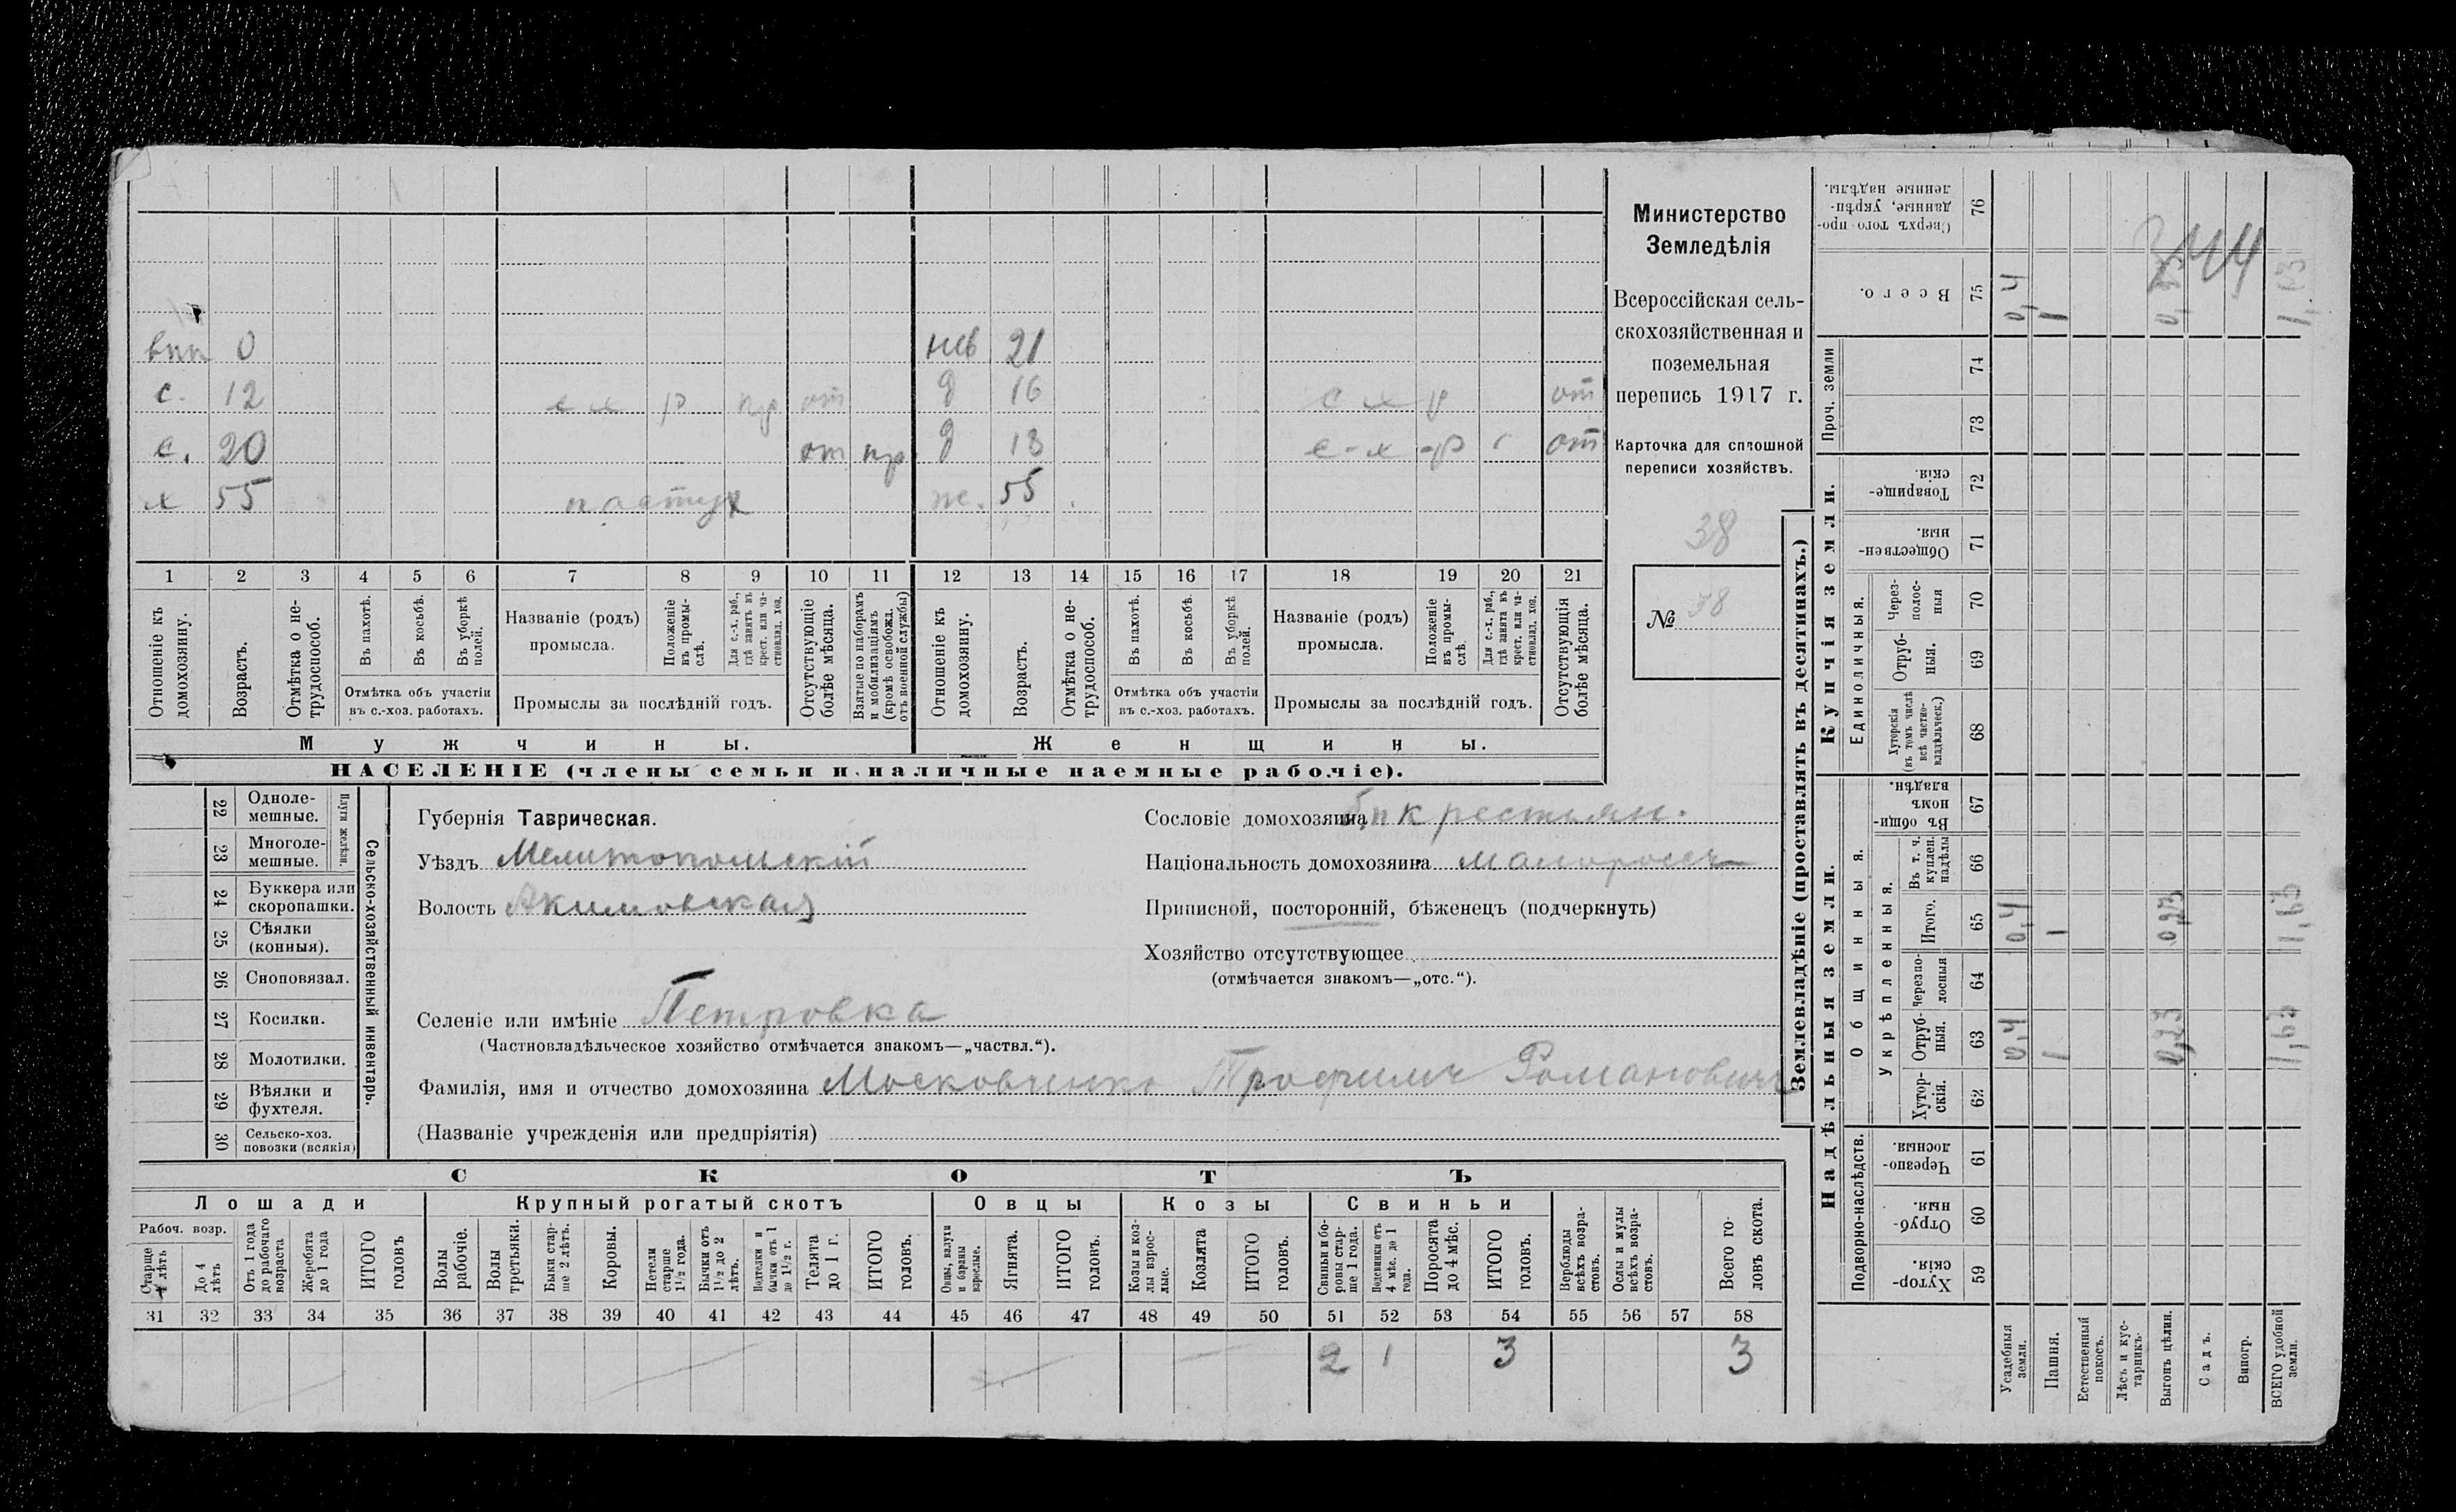 внп 0 нев 21
с. 12 с х р пр от д 16 с х р от
с. 20 от пр д 18 с-х -р от
х 55 пастух ж. 55
1 2 3 4 5 6 7 8 9 10 11 12 13 14 15 16 17 18 19 20 21
Отношеніе къ домохозяину.
Возрастъ.
Отмѣтка о не-
трудоспособ.
Въ пахотѣ.
Въ косьбѣ.
Въ уборкѣ
полей.
Отмѣтка объ участіи
въ с.-хоз. работахъ.
Названіе (родъ)
промысла.
Положеніе
въ промы-
слѣ.
Для с.-х. раб.,
гдѣ занятъ въ
крест. или ча-
стновлад. хоз.
Промыслы за послѣдній годъ.
Отсутствующіе
болѣе мѣсяца.
Взятые по наборамъ
и мобилизаціямъ
(кромѣ освобожд.
отъ военной службы)
Отношеніе къ
домохозяину.
Возрастъ.
Отмѣтка о не-
трудоспособ.
Въ пахотѣ.
Въ косьбѣ.
Въ уборкѣ
полей.
Отмѣтка объ участіи
въ с.-хоз. работахъ.
Названіе (родъ)
промысла.
Положеніе
въ промы-
слѣ.
Для с.-х. раб.,
гдѣ занята въ
крест. или ча-
стновлад. хоз.
Промыслы за послѣдній годъ.
Отсутствующія
болѣе мѣсяца.
Мужчины.
Женщины.
НАСЕЛЕНІЕ (члены семьи и наличные наемные рабочіе).
Министерство
Земледѣлія
Всероссійская сель-
скохозяйственная и
поземельная
перепись 1917 г.
Карточка для сплошной
переписи хозяйствъ.
38
№ 38
22 Одноле-
мешные.
23 Многоле-
мешные.
Плуги желѣзн.
24 Буккера или
скоропашки.
25 Сѣялки
(конныя).
26 Сноповязал.
27 Косилки.
28 Молотилки.
29 Вѣялки и
фухтеля.
30 Сельско-хоз.
повозки (всякія)
Сельско-хозяйственный инвентарь.
Губернія Таврическая.
Уѣздъ Мелитопольскій
Волость Акимовская
Селеніе или имѣніе Петровка
(Частновладѣльческое хозяйство отмѣчается знакомъ—„частвл.“).
Фамилія, имя и отчество домохозяина Московченко Трофимъ Романовичъ
(Названіе учрежденія или предпріятія)
Сословіе домохозяина крестьян.
Національность домохозяина малороссъ
Приписной, посторонній, бѣженецъ (подчеркнуть)
Хозяйство отсутствующее
(отмѣчается знакомъ—„отс.“).
СКОТЪ
Лошади
Крупный рогатый скотъ
Овцы
Козы
Свиньи
Рабоч. возр.
Старше
4 лѣтъ
До 4
лѣтъ
Отъ 1 года
до рабочаго
возраста
Жеребята
до 1 года
ИТОГО
головъ
Волы
рабочіе.
Волы
третьяки.
Быки стар-
ше 2 лѣтъ.
Коровы.
Нетели
старше
1½ года.
Бычки отъ
1½ до 2
лѣтъ.
Подтелки и
бычки отъ 1
до 1½ г.
Телята
до 1 г.
ИТОГО
головъ.
Овцы, валухи
и бараны
взрослые.
Ягнята.
ИТОГО
головъ.
Козы и коз-
лы взрос-
лые.
Козлята
ИТОГО
головъ.
Свиньи и бо-
ровы стар-
ше 1 года.
Подсвинки отъ
4 мѣс. до 1
года.
Поросята
до 4 мѣс.
ИТОГО
головъ.
Верблюды
всѣхъ возра-
стовъ.
Ослы и мулы
всѣхъ возра-
стовъ.
Всего го-
ловъ скота.
31 32 33 34 35 36 37 38 39 40 41 42 43 44 45 46 47 48 49 50 51 52 53 54 55 56 57 58
2 1 3 3
Землевладѣніе (проставлять въ десятинахъ.)
Купчія земли.
Надѣльныя земли.
Проч. земли
Единоличныя.
Общинныя.
Укрѣпленныя.
Подворно-наслѣдств.
Сверхъ того про-
данные, укрѣп-
ленные надѣлы. 76
Всего. 75 0,4 1
74
73
Товарище-
скія. 72
Обществен-
ныя. 71
Через-
полос-
ныя 70
Отруб-
ныя. 69
Хуторскія
(въ томъ числѣ
всѣ частно-
владѣльческ.) 68
Въ общин-
номъ
владѣн. 67
Въ т. ч.
куплен.
надѣлы 66
Итого. 65 0,4 1 0,23 1,63
Черезпо-
лосныя 64
Отруб-
ныя. 63 0,4 1 0,23 1,63
Хутор-
скія. 62
Черезпо-
лосныя. 61
Отруб-
ныя. 60
Хутор-
скія. 59
Усадебныя
земли.
Пашня.
Естественный
покосъ.
Лѣсъ и кус-
тарникъ.
Выгонъ цѣлин.
Садъ.
Виногр.
ВСЕГО удобной
земли.